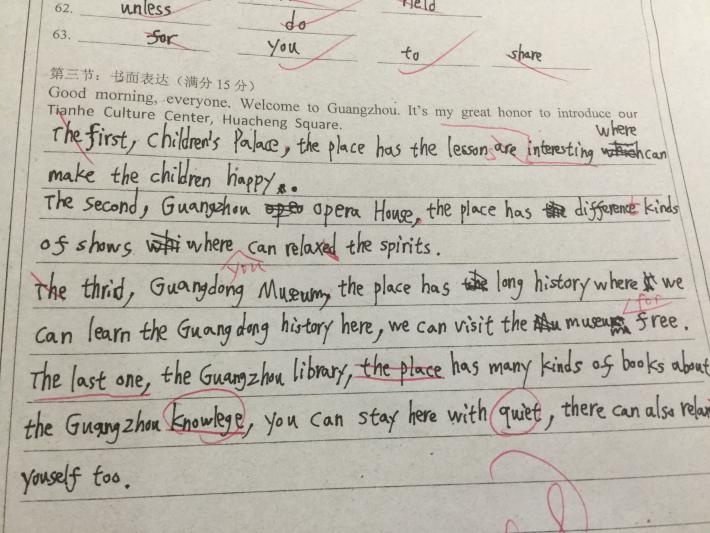 62. unless do held
63. for you to share
第三节：书面表达（满分 15 分）
Good morning, everyone. Welcome to Guangzhou. It's my great honor to introduce our
Tianhe Culture Center, Huacheng Square.
where
The first, Children's Palace, the place has the lessons are interesting which can
make the children happy.
The second, Guangzhou opera House, the place has different kinds
of shows where can relaxed the spirits.
you
The thrid, Guangdong Museum, the place has the long history where we
for
can learn the Guangdong history here, we can visit the museum free.
The last one, the Guangzhou library, the place has many kinds of books about
the Guangzhou knowlege, you can stay here with quiet, there can also relax
youself too.